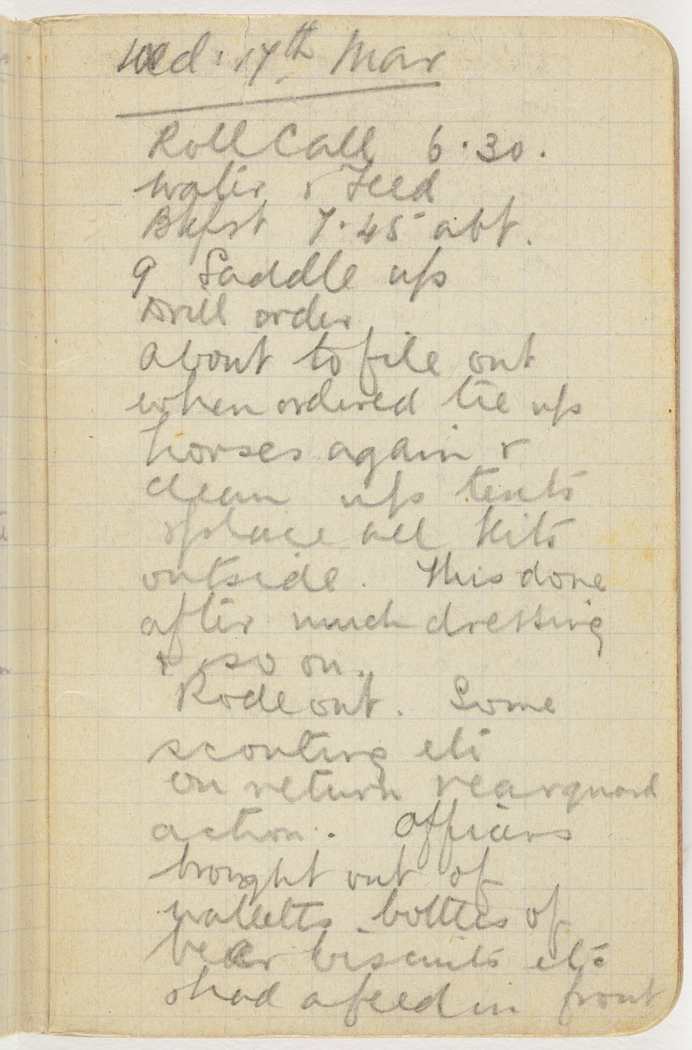 Wed: 17th Mar
Roll Call 6.30.
water & Feed
Bkfst 7.45 abt.
9 Saddle up
Drill order
About to file out
when ordered tie up
horses again &
clean up tents
& place all kits
outside. This done
after much dressing
& so on.
Rode out. Some
scouting etc
on return rearguard
action. Officers
brought out of
walletts bottles of
beer biscuits etc
& had a feed in front